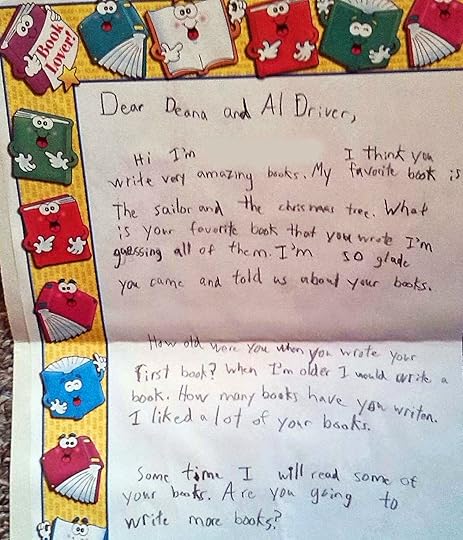 Book Lover!
Dear Deana and Al Driver,
Hi I'm I think you
write very amazing books. My favorite book is
The sailor and the chrismas tree. What
is your favorite book that you wrote I'm
guessing all of them. I'm so glade
you came and told us about your books.
How old were you when you wrote your
first book? When I'm older I would write a
book. How many books have you writen.
I liked a lot of your books.
Some time I will read some of
your books. Are you going to
write more books?